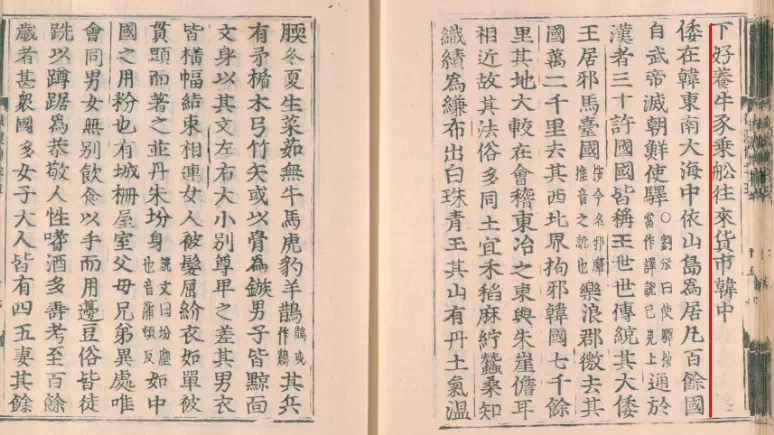 下好養牛豕乘舩往來貨市韓中
倭在韓東南大海中依山島為居凡百餘國
自武帝滅朝鮮使驛○劉攽曰使驛按當作譯說已見上通於
漢者三十許國國皆稱王世世傳統其大倭
王居邪馬臺國按今名邪摩惟音之訛也樂浪郡徼去其
國萬二千里去其西北界拘邪韓國七千餘
里其地大較在會稽東冶之東與朱崖儋耳
相近故其法俗多同土宜禾稻麻紵蠶桑知
織績為縑布出白珠青玉其山有丹土氣溫
腝冬夏生菜茹無牛馬虎豹羊鵲鵲或作雞其兵
有矛楯木弓竹矢或以骨為鏃男子皆黥面
文身以其文左右大小別尊卑之差其男衣
皆橫幅結束相連女人被髮屈紒衣如單被
貫頭而著之並丹朱坋身說文曰坋塵也音蒲頓反如中
國之用粉也有城柵屋室父母兄弟異處唯
會同男女無別飲食以手而用籩豆俗皆徒
跣以蹲踞為恭敬人性嗜酒多壽考至百餘
歲者甚衆國多女子大人皆有四五妻其餘